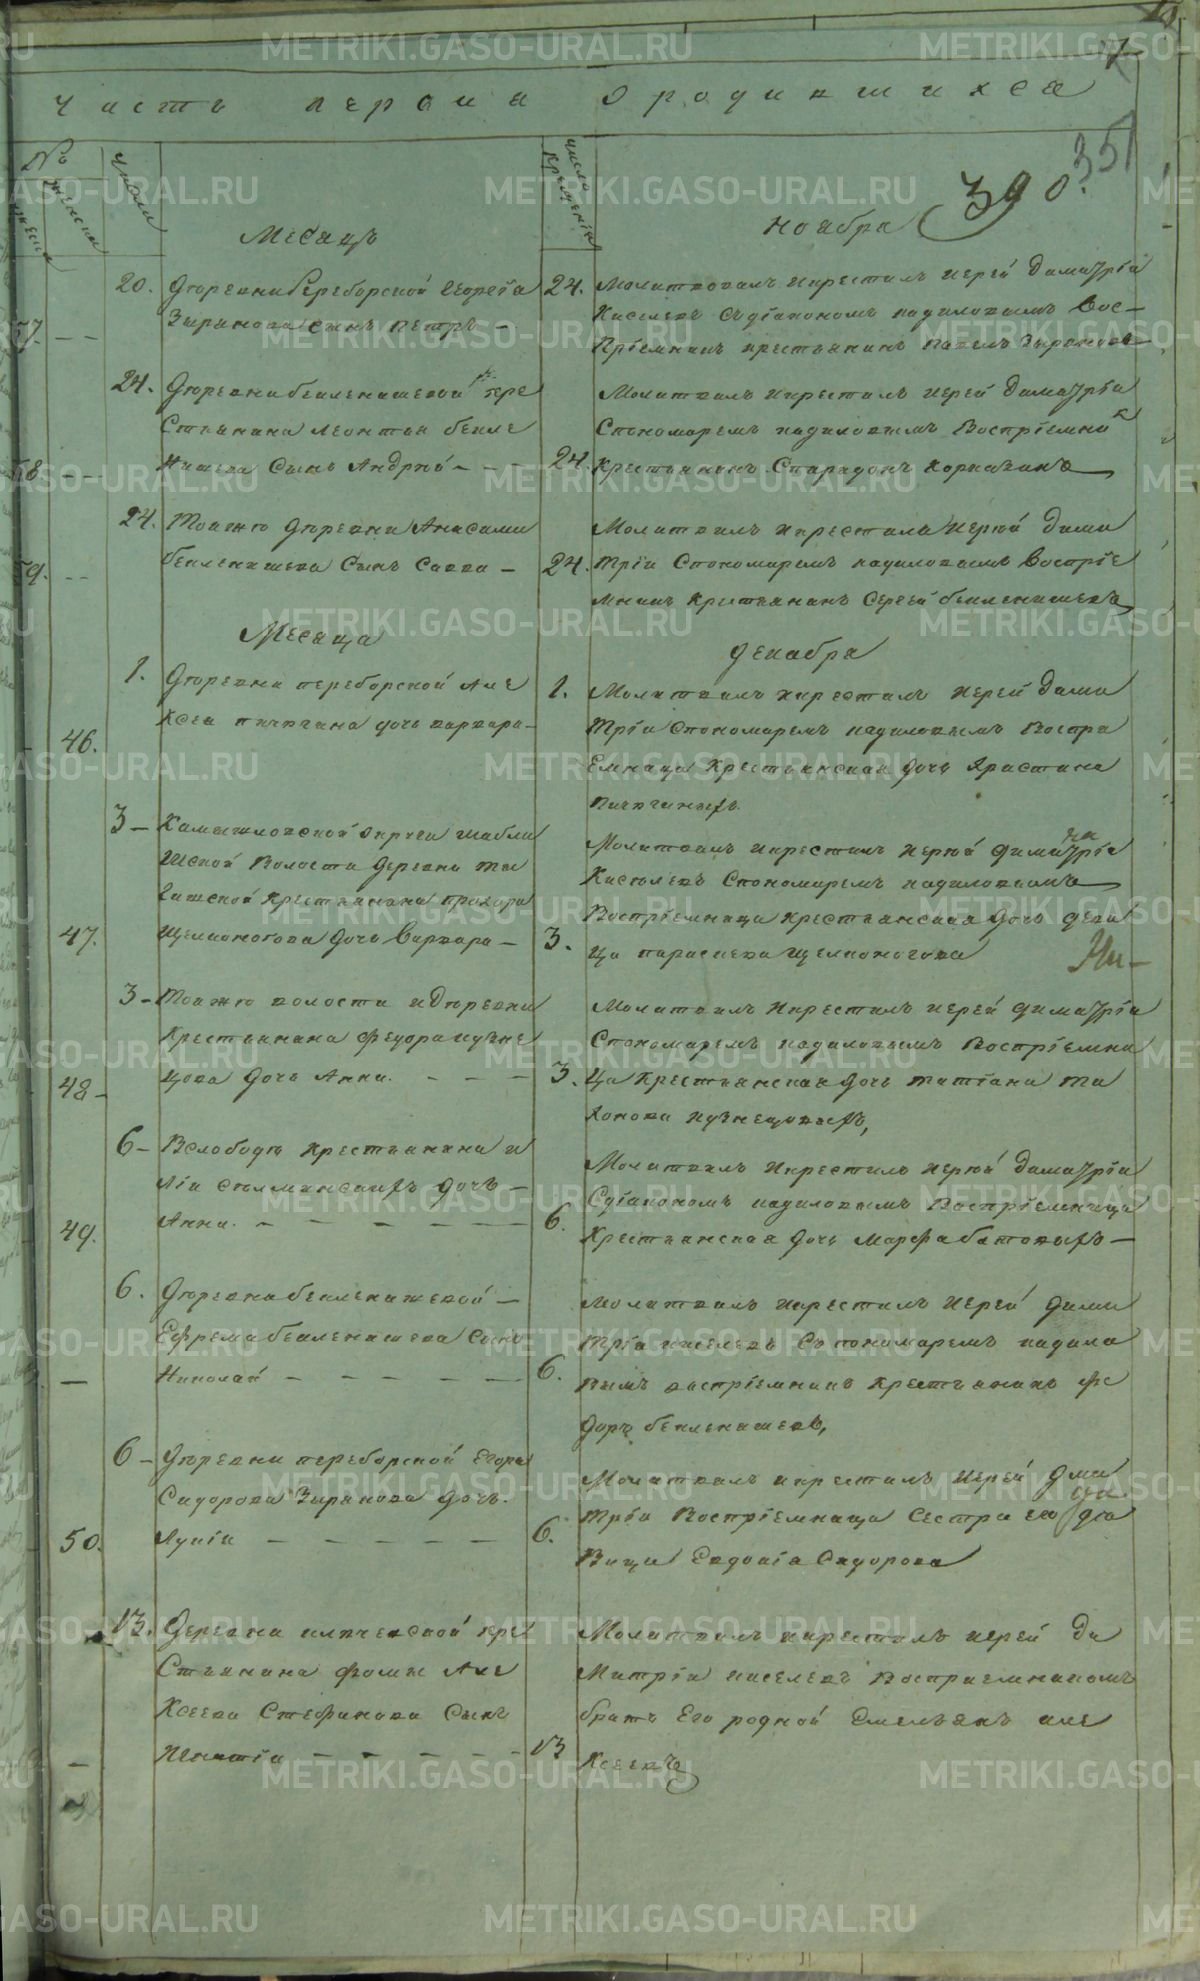 METRIKI.GASO-URAL.RU
7
часть первая о родившихся
351
390.
№
женска
числа
число
крещенія
Месяцъ
ноября
20. Дюревни Переборской Георгіа
Зырянова сынъ Петръ —
24. Молитвовалъ икрестилъ иерей Димитріи
Киселевъ Съдіакономъ надиловымъ Вос—
Пріемникъ крестьянинъ Павелъ Зыряновъ
57. — —
24. Дюревни бекленишевой кре
Стьянина Леонтия бекле
Нишева Сынъ Андрей — — —
58 — —
Молитвалъ икрестилъ иерей Димитріи
Спономаремъ надиловымъ Воспріемник
24. Крестьянинъ Спиридонъ
24. Тояжю Дюревни
бекленишева Сынъ Савва —
59. — —
Молитвалъ икрестилъ Иерей Дими
24. тріи Спономаремъ надиловымъ Воспріе
мникъ Крестьянинъ Сергей бекленишевъ
Месяца
декабря
1. Дюревни переборской Але
Ксея пичюгина дочь варвара —
46.
1. Молитвалъ икрестилъ иерей Дими
Тріи Спономаремъ надиловымъ Воспри
Емница Крестьянская дочь Христина
Пичюгиныхъ.
3 — Камышловской округи шабли
Шской Волости Деревни
крестьянина прохора
Щелконогова Дочь Варвара —
47.
Молитвалъ икрестилъ иерей Димитріи
Киселевъ Спономаремъ надиловымъ
Воспріемница крестьянская Дочь деви
3. ца параскева щелконогова
3 — Тояжю волости иДюревни
Крестьянина Федора Кузне
цова Дочь Анна. — — —
48 —
Молитвалъ Икрестилъ иерей Димитріи
Спономаремъ надиловымъ Воспріемни
3. Ца Крестьянская Дочь татіана ти
хонова Кузнецовыхъ,
6 — Вслободе крестьянина и
ліи Дочь —
Анна. — — — — — —
49.
Молитвалъ Икрестилъ иерей Димитріи
Сдіакономъ надиловымъ Воспріемница
6. Крестьянская Дочь Марфа батовыхъ —
6. Дюревни бекленишевой —
Ефрема бекленишева Сынъ
Николай — — — — — —
—
Молитвалъ икрестилъ Иерей Дими
тріи киселевъ Съ пономаремъ надило
6. вымъ воспріемникъ Крестьянинъ фе
доръ бекленишевъ,
6 — Дюревни переборской Егора
Сидорова Зырянова дочь.
Лукія — — — — — —
50.
Молитвалъ икрестилъ иерей Дми
Тріи Воспріемница Сестра его
6. Вица Евдокіа Сидорова
13. Деревни кре
Стьянина фомы Але
Ксеева Стефанова Сынъ
Игнатіи — — — — —
—
Молитвалъ икрестилъ иерей Ди
Митріи киселевъ Восприемникомъ
братъ Его родной Емельянъ але
13 Ксеевъ